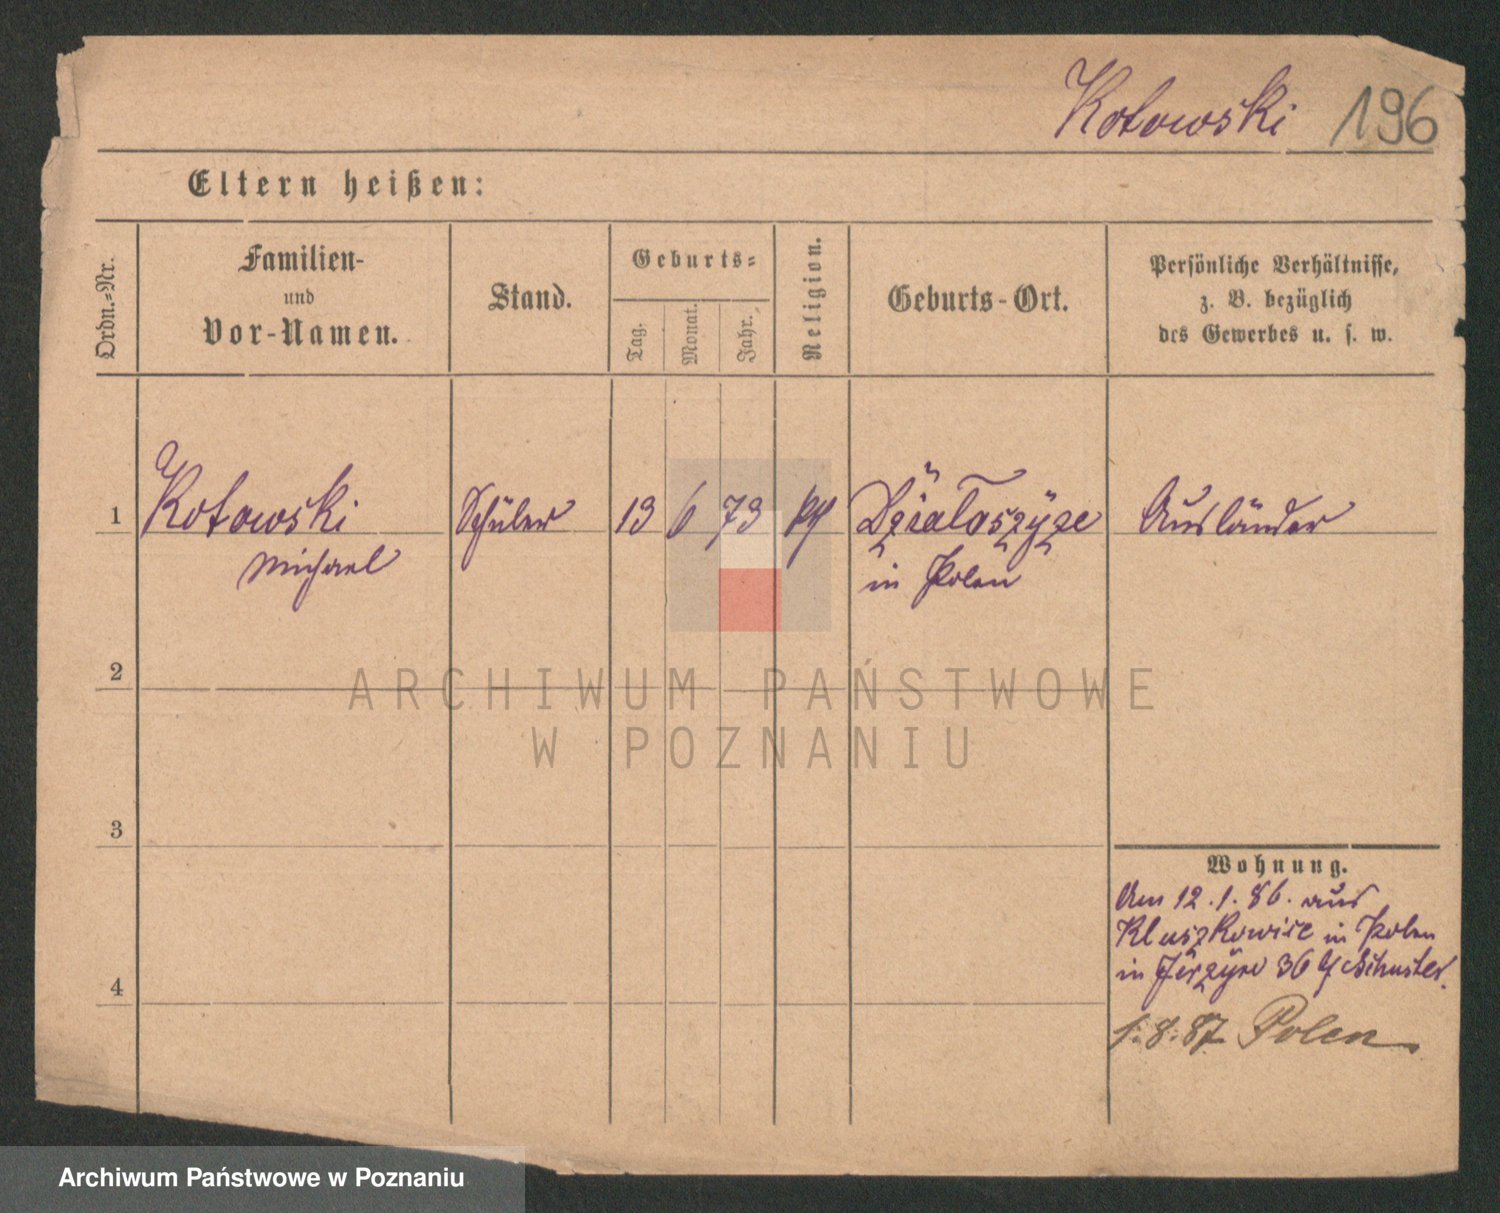 Kotowski 196
Eltern heißen:
Ordn.-Nr.
Familien-
und
Vor-Namen.
Stand.
Geburts-
Tag.
Monat.
Jahr.
Religion.
Geburts-Ort.
Persönliche Verhältnisse,
z. B. bezüglich
des Gewerbes u. s. w.
1 Kotowski Schüler 13 6 73 Ausländer
Michael in Polen
2
ARCHIWUM PAŃSTWOWE
W POZNANIU
3
Wohnung.
Am 12.1.86. aus
in Polen
in 36 Schuster.
4
1.8.87 Polen
Archiwum Państwowe w Poznaniu